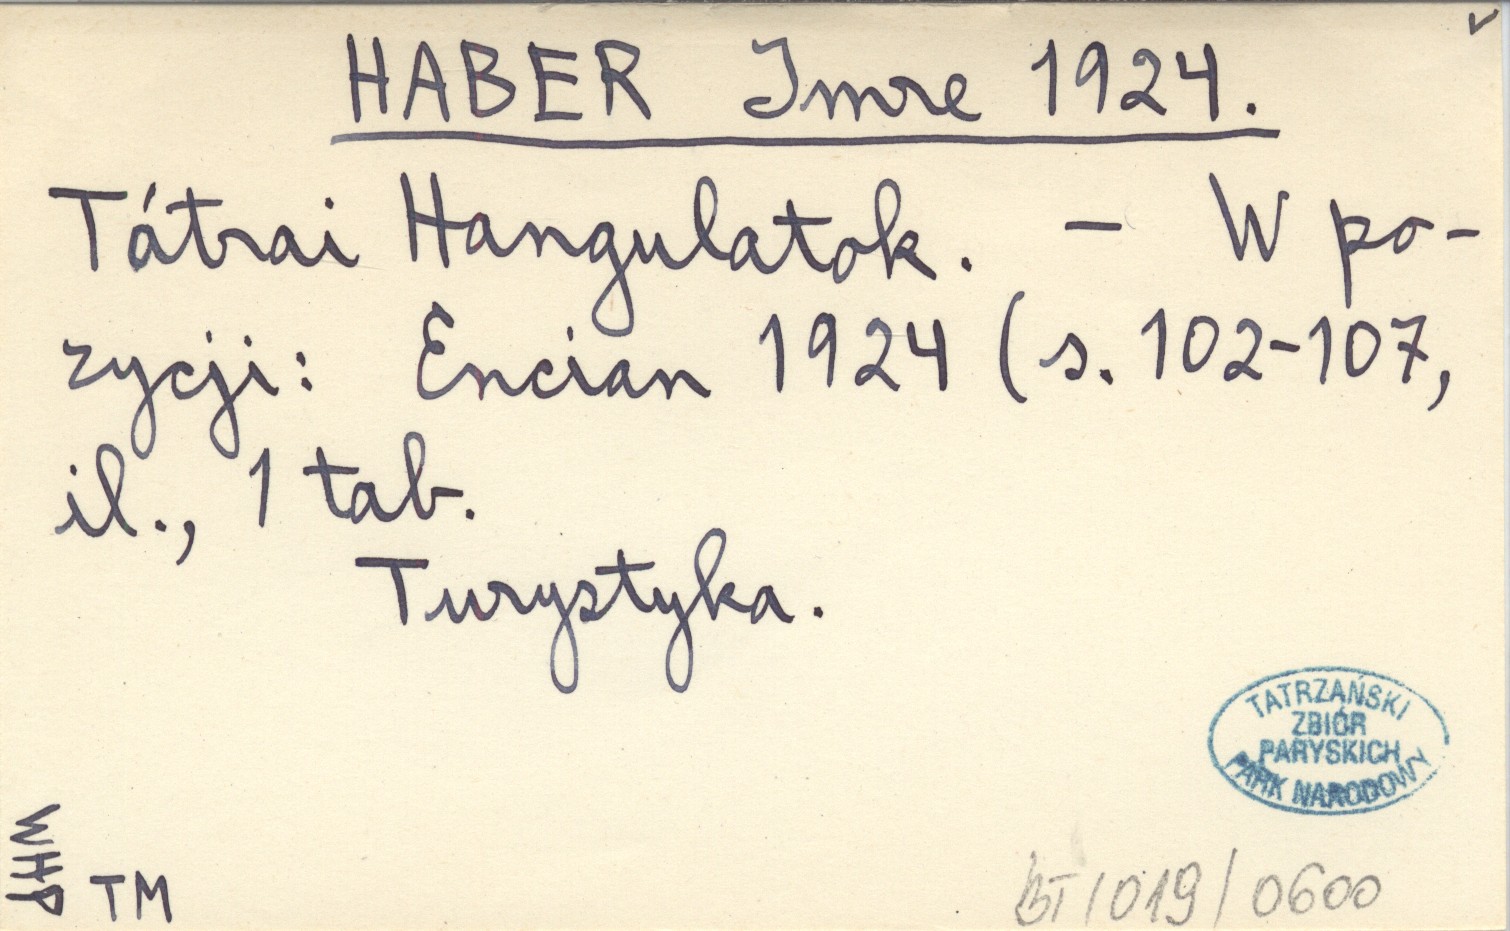 HABER Imre 1924.
Tátrai Hangulatok. - W po-
zycji: Encian 1924 (s. 102-107,
il., 1 tab.
Turystyka.
TATRZAŃSKI
ZBIÓR
PARYSKICH
PARK NARODOWY
WHP
TM
BT/019/0600